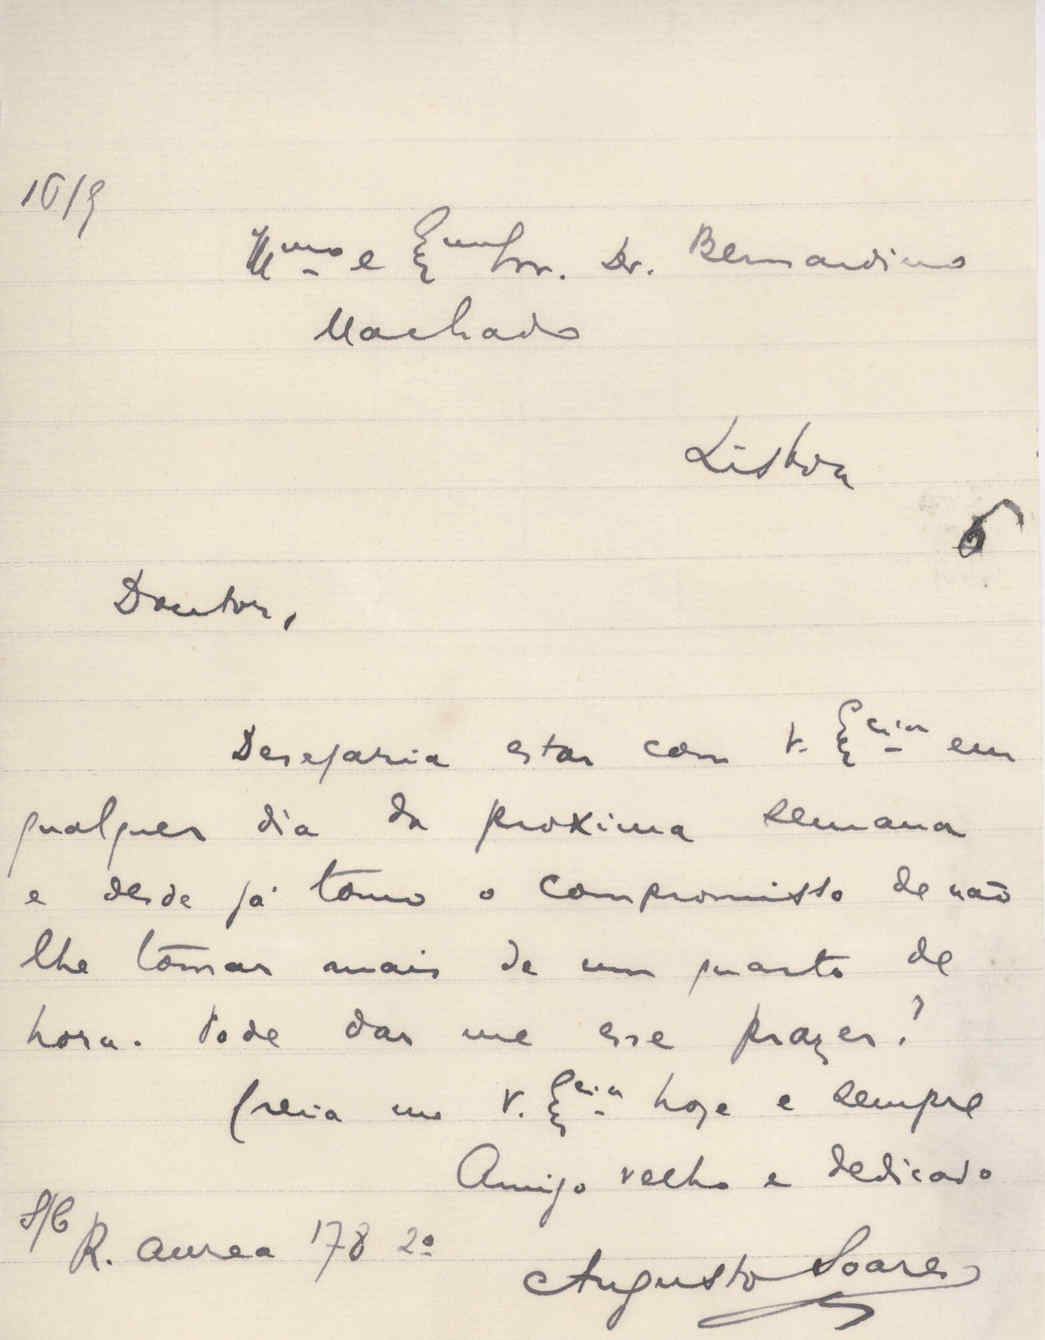 10/9
Illmo e Exmo Snr. Dr. Bernardino
Machado
Lisboa
Doutor,
Desejaria estar com V. Excia em
qualquer dia da proxima semana
e desde já tomo o compromisso de não
lhe tomar mais de um quarto de
hora. Pode dar me esse prazer?
Creia me V. Excia hoje e sempre
Amigo velho e dedicado
S/C R. Aurea 178 2º
Augusto Soares